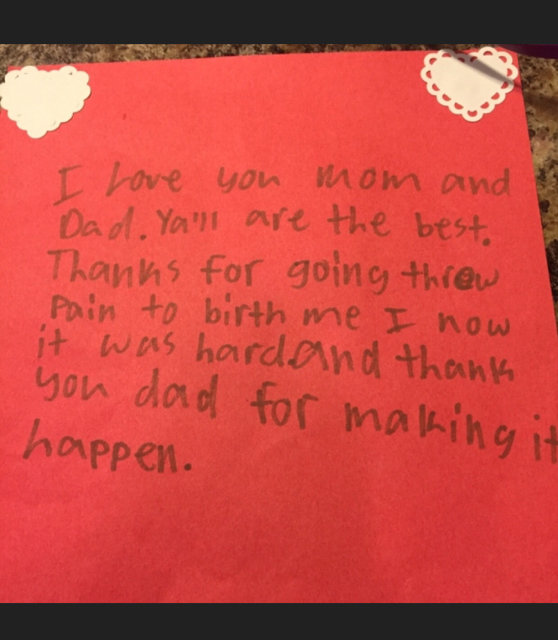 I Love you mom and
Dad. Ya'll are the best.
Thanks for going threw
Pain to birth me I now
it was hard. And thank
you dad for making it
happen.